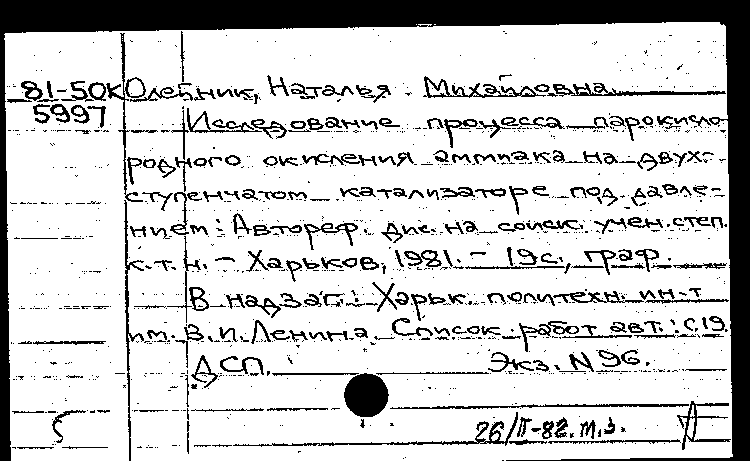 81-50К Олейник, Наталья Михайловна.
5997 Исследование процесса парокисло-
родного окисления аммиака на двух-
ступенчатом катализаторе под давле-
нием: Автореф. дис. на соиск. учен. степ.
к.т.н. - Харьков, 1981. - 19с., граф.
В надзаг.: Харьк. политехн. ин-т
им. В.И. Ленина. Список работ авт.: с.19.
ДСП. Экз. N 96.
26/II-82. т.з.